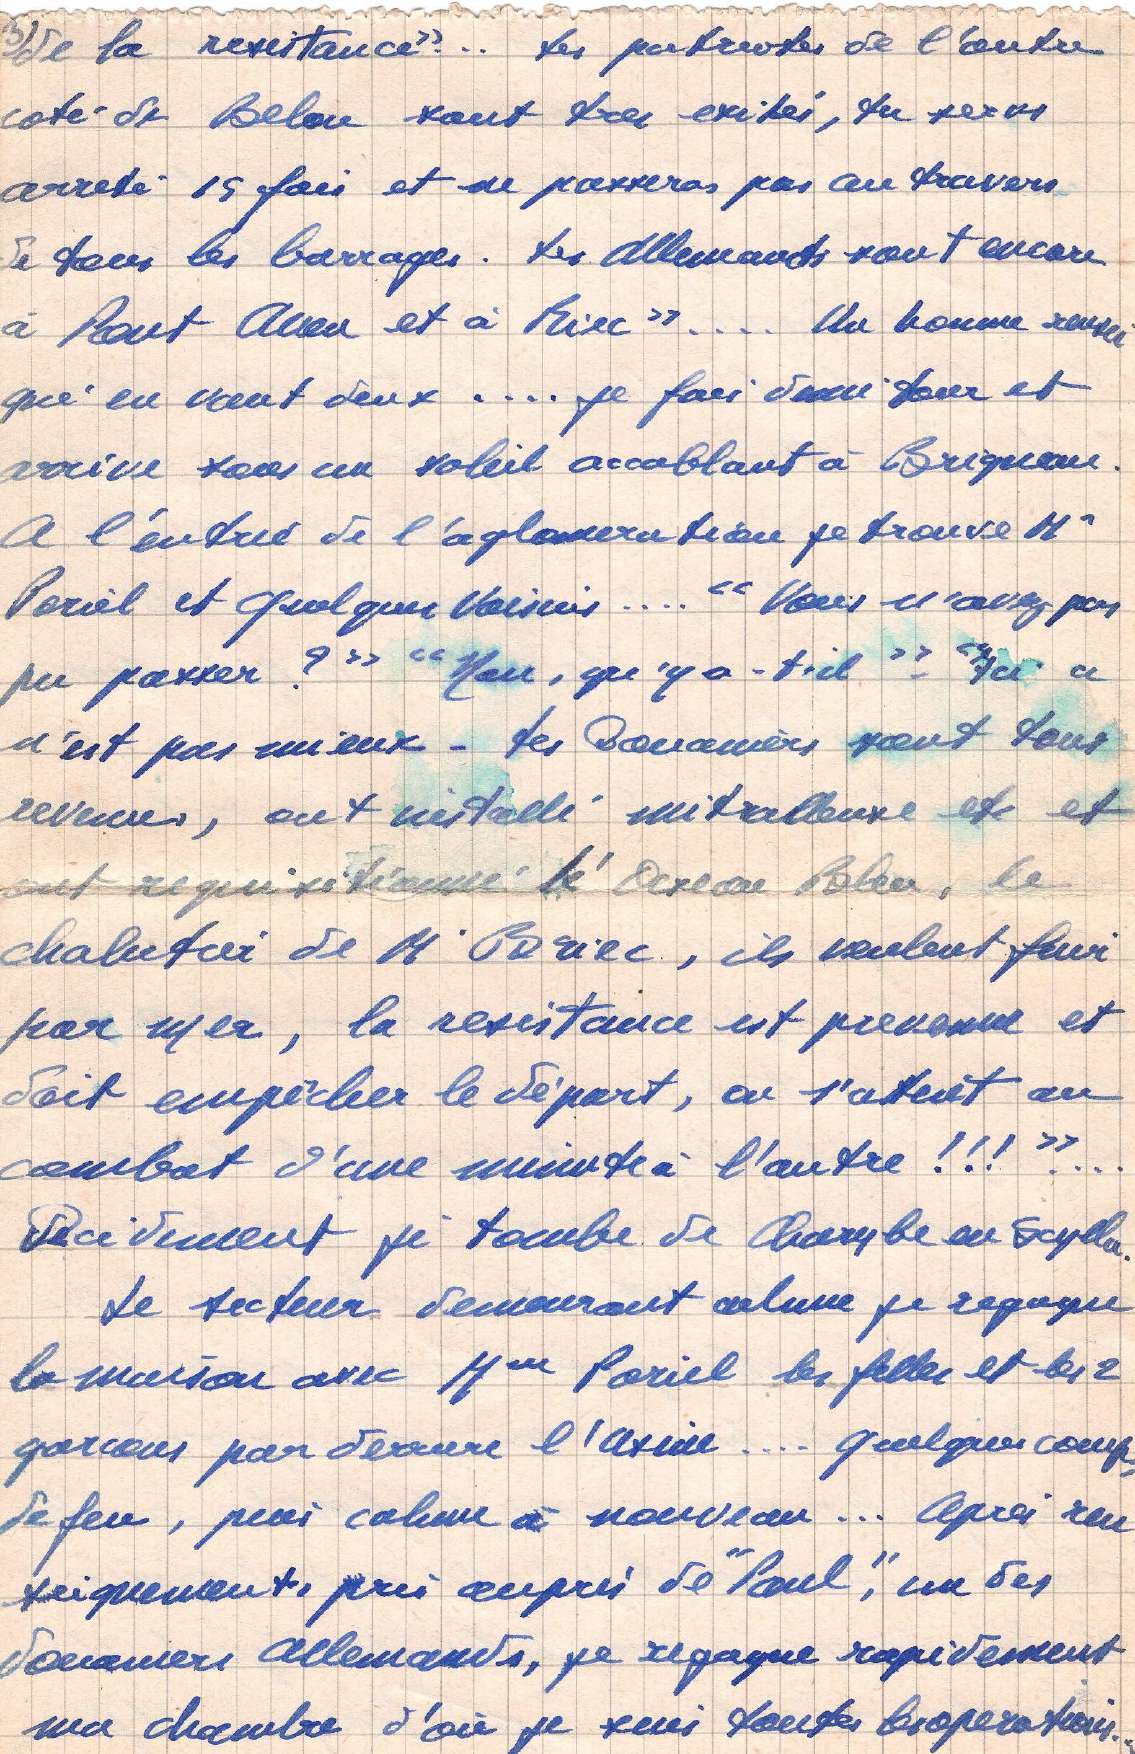 3)
de la resistance".. Les patriotes de l'autre
coté de Belon sont tres exités, tu seras
arreté 15 fois et ne passeras pas au travers
de tous les barrages. Les Allemands sont encore
à Pont Aven et à Riec".... Un homme rensei
gné en vaut deux .... je fais demi tour et
arrive sous un soleil accablant à Brigneau.
A l'entrée de l'aglomeration je trouve Mr
Poriel et quelques voisins .... "Vous n'avez pas
pu passer ?" "Non, qu'y a-t-il" - "Ici ce
n'est pas mieux - Les Douaniers sont tous
revenus, ont installé mitralleuse etc et
ont requisitionné l'Oiseau Bleu, le
chalutier de Mr Bériec, ils veulent fuir
par mer, la resistance est prevenue et
doit empêcher le départ, on s'attent au
combat d'une minute à l'autre !!!"....
Decidement je tombe de Charybe en Scylla.
Le secteur demeurant calme je regagne
la maison avec Mme Poriel les filles et les 2
garcons par derriere l'usine .... quelques coups
de feu, puis calme à nouveau ... Après ren
seignements pris auprès de "Paul", un des
douaniers Allemands, je regagne rapidement
ma chambre d'où je suis toutes les operations..